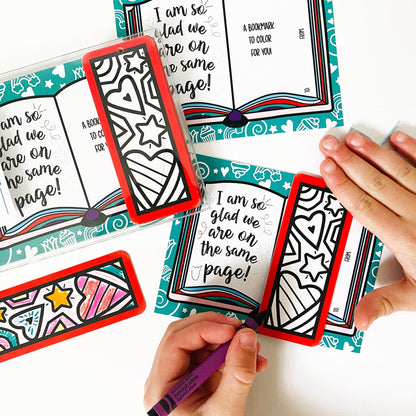 I am so
glad we
are on
the same
page!
A BOOKMARK
TO COLOR
FOR YOU!
TO:
FROM:
I am so
glad we
are on
the same
page!
A BOOKMARK
TO COLOR
FOR YOU!
I am so
glad we
are on
the same
page!
TO:
FROM: